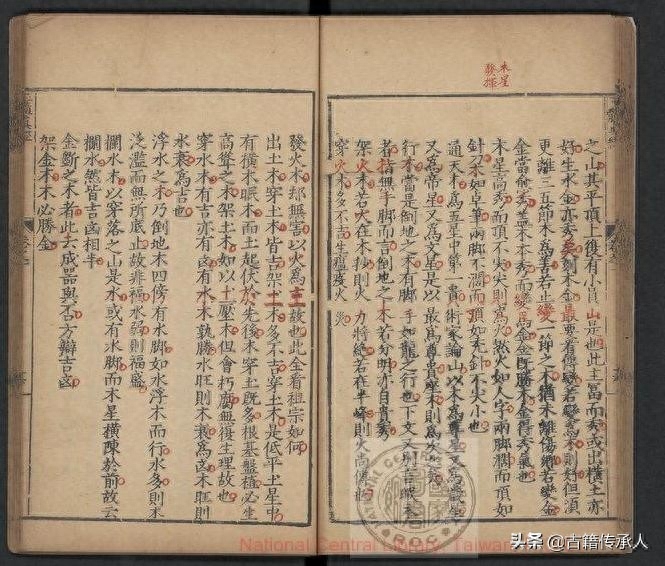 木星
發揮
之山其平頂上復有小員山是也此主富而秀或出橫土亦
好生水金亦秀至刻木金最要看得變若變爲木則好但須
更離三五節木爲善若止變一節之木猶未離傷鄉若變金
金當愈秀蓋木本秀而變爲金金既勝木金得秀氣也
木星高秀而頂不尖尖則爲火然人如人字兩脚濶而頂如
針刀木如卓筆兩脚不濶而頂如禿針不尖小也
通天木爲五星中第一貴術家論山以木爲尊星又爲歲星
又爲帝星又爲文星是以最爲尊貴
行木當是倒地之木有脚手如龍之行也下文又別言眠木
者指無手脚而言倒地之木若分明亦自貴秀
架火木若大在木抄則火力將絕若在半峰則火尚傳也
穿火木多不吉生瘟疫火災
發火木却無害以火爲主故也此全看祖宗如何
出土木穿土木皆吉架土木多不吉穿土木是低平土星中
有橫木眠木而土起伏於先後木穿土既多根基盤桓必生
高聳之木架土木如以十壓木但會朽腐無復生理故也
穿水木有吉亦有凶有水木孰勝水旺則木衰爲凶木旺則
水衰爲吉也
浮水之木乃倒地木四傍有水脚如水浮木而行水多則木
泛濫而無所底止故非福水弱則福盛
攔水木以穿落之山是水或有水脚而木星橫陳於前故云
攔水然皆吉凶相半
金斷之木者此去成器與否方辯吉凶
架金木木必勝金
National Central Library, Taiwan
頭条 @古籍传承人